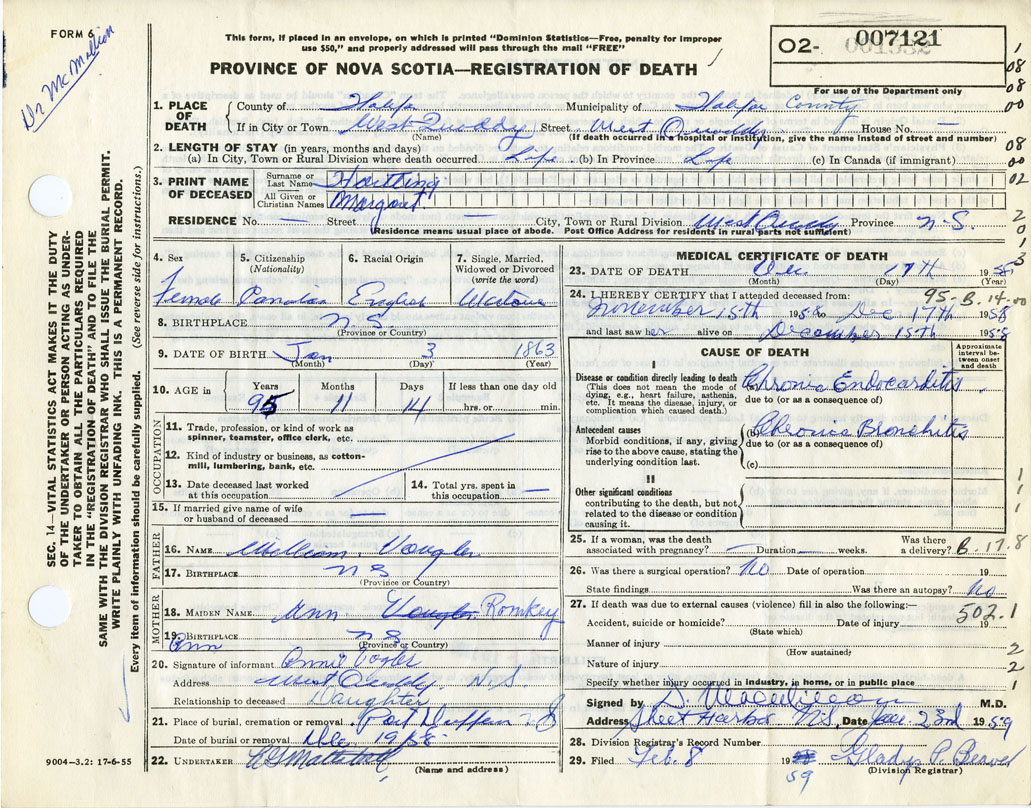 FORM 6
Dr McMillion
This form, if placed in an envelope, on which is printed "Dominion Statistics—Free, penalty for improper
use $50," and properly addressed will pass through the mail "FREE"
PROVINCE OF NOVA SCOTIA—REGISTRATION OF DEATH
O2- 007121
For use of the Department only
1. PLACE OF DEATH
County of Halifax Municipality of Halifax County
If in City or Town West Quoddy Street West Quoddy House No. —
(Name) (If death occurred in a hospital or institution, give the name instead of street and number)
2. LENGTH OF STAY (in years, months and days)
(a) In City, Town or Rural Division where death occurred Life (b) In Province Life (c) In Canada (if immigrant)
3. PRINT NAME OF DECEASED
Surname or Last Name Hartling
All Given or Christian Names Margaret
RESIDENCE No. — Street — City, Town or Rural Division West Quoddy Province N-S.
(Residence means usual place of abode. Post Office Address for residents in rural parts not sufficient)
1
08
08
00
08
00
02
2
0
3
4. Sex Female
5. Citizenship (Nationality) Canadian
6. Racial Origin English
7. Single, Married, Widowed or Divorced (write the word)
8. BIRTHPLACE N.S
(Province or Country)
9. DATE OF BIRTH Jan 3 1863
(Month) (Day) (Year)
10. AGE in Years 95 Months 11 Days 14 If less than one day old
hrs. or min.
OCCUPATION
11. Trade, profession, or kind of work as
spinner, teamster, office clerk, etc.
12. Kind of industry or business, as cotton-
mill, lumbering, bank, etc.
13. Date deceased last worked
at this occupation
14. Total yrs. spent in
this occupation —
15. If married give name of wife
or husband of deceased —
FATHER
16. NAME William Vougler
17. BIRTHPLACE N S
(Province or Country)
MOTHER
18. MAIDEN NAME Ann Vougler Romkey
19. BIRTHPLACE N S
(Province or Country)
Ann
20. Signature of informant Annie Vogler
Address West Quoddy N.S.
Relationship to deceased Daughter
21. Place of burial, cremation or removal Port Dufferin N S
Date of burial or removal Dec 19 58
22. UNDERTAKER
(Name and address)
MEDICAL CERTIFICATE OF DEATH
23. DATE OF DEATH Dec 17th 1958
(Month) (Day) (Year)
95-B.14-00
24. I HEREBY CERTIFY that I attended deceased from:
November 15th 1958 to Dec 17th 1958
and last saw her alive on December 15th 1958
CAUSE OF DEATH
Approximate interval between onset and death
I
Disease or condition directly leading to death
(This does not mean the mode of
dying, e.g., heart failure, asthenia,
etc. It means the disease, injury, or
complication which caused death.)
(a) Chronic Endocarditis
due to (or as a consequence of)
Antecedent causes
Morbid conditions, if any, giving
rise to the above cause, stating the
underlying condition last.
(b) Chronic Bronchitis
due to (or as a consequence of)
(c)
II
Other significant conditions
contributing to the death, but not
related to the disease or condition
causing it.
1
1
1
25. If a woman, was the death
associated with pregnancy? — Duration — weeks. Was there
a delivery? B.17.8
26. Was there a surgical operation? No Date of operation 19
State findings Was there an autopsy? No
27. If death was due to external causes (violence) fill in also the following:—
502.1
Accident, suicide or homicide? Date of injury 19
(State which)
Manner of injury 2
(How sustained)
Nature of injury 2
Specify whether injury occurred in industry, in home, or in public place 1
Signed by M.D.
Address Sheet Harbor N.S. Date Jan 23rd 1959
28. Division Registrar's Record Number
29. Filed Feb. 8 19 59 Gladys P. Beaver
(Division Registrar)
SEC. 14—VITAL STATISTICS ACT MAKES IT THE DUTY
OF THE UNDERTAKER OR PERSON ACTING AS UNDER-
TAKER TO OBTAIN ALL THE PARTICULARS REQUIRED
IN THE "REGISTRATION OF DEATH" AND TO FILE THE
SAME WITH THE DIVISION REGISTRAR WHO SHALL ISSUE THE BURIAL PERMIT.
WRITE PLAINLY WITH UNFADING INK. THIS IS A PERMANENT RECORD.
Every item of information should be carefully supplied. (See reverse side for instructions.)
9004—3.2: 17-6-55